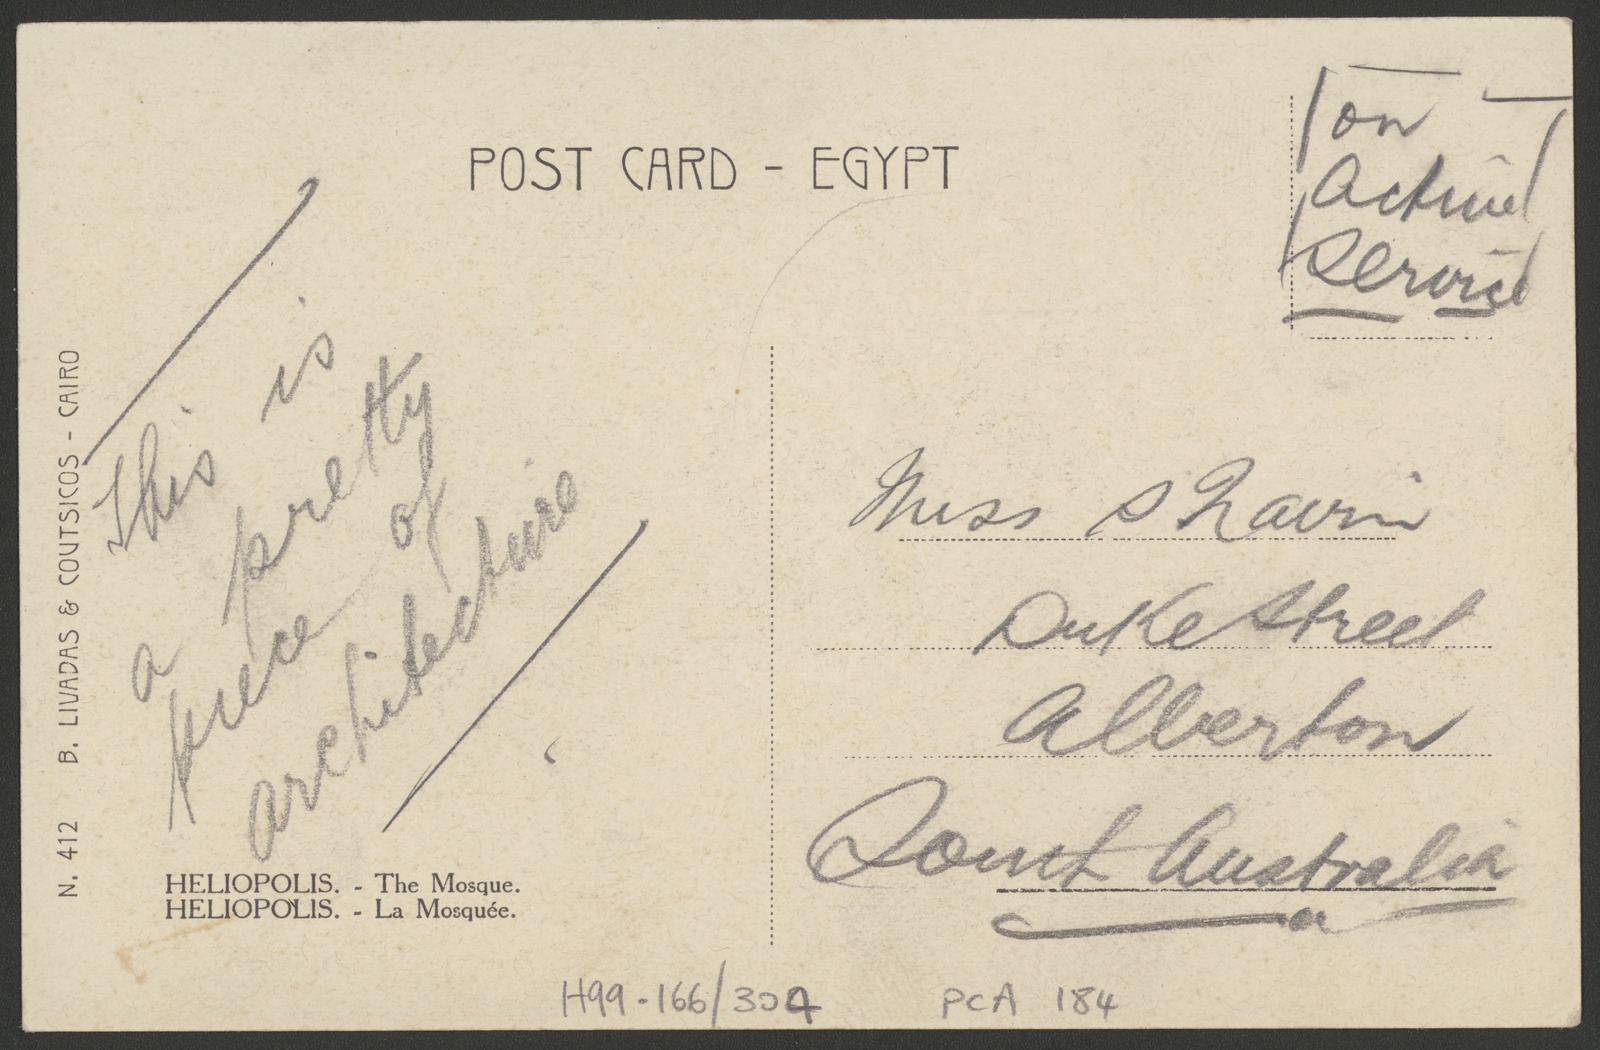 POST CARD - EGYPT
on
Active
Service
This is
a pretty
piece of
architecture
Miss S
Duke Street
Alberton
South Australia
HELIOPOLIS. - The Mosque.
HELIOPOLIS. - La Mosquée.
N. 412 B. LIVADAS & COUTSICOS - CAIRO
H99-166/304
PCA 184